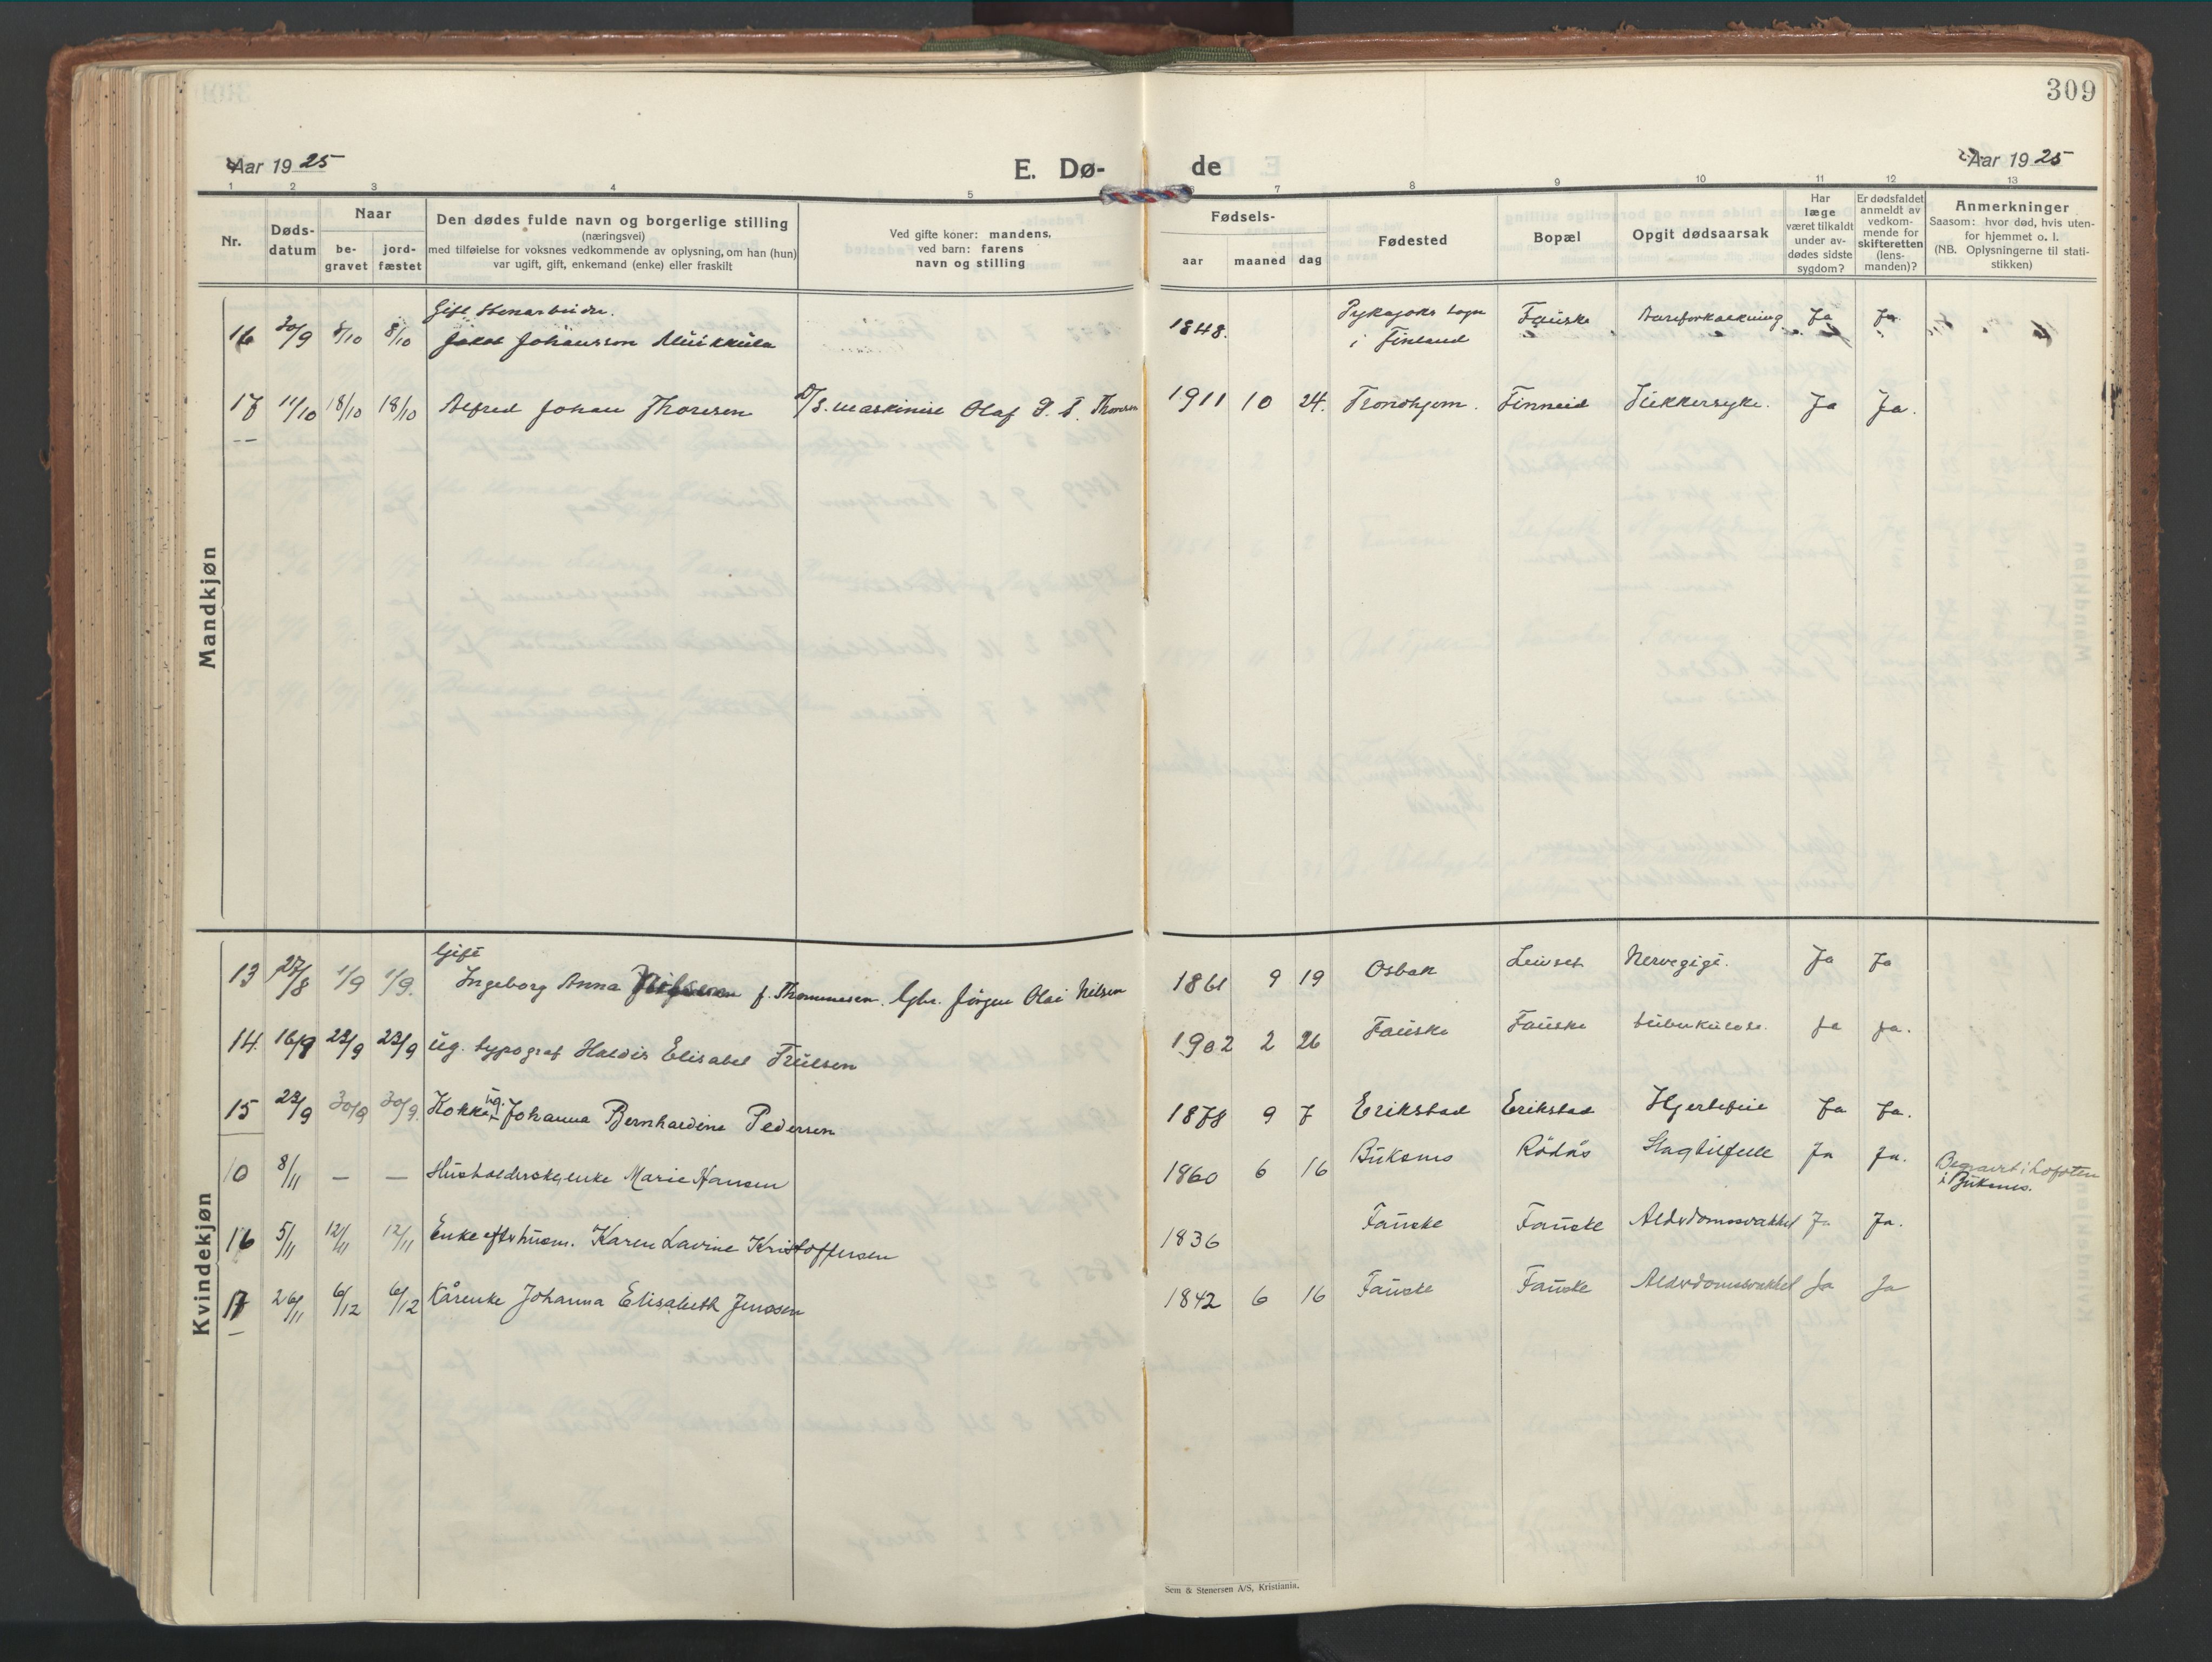 309
Aar 1925
E. Dø-
de
Aar 1925
1 2 3 4 5 6 7 8 9 10 11 12 13
Nr.
Døds-
datum
Naar
be-
gravet
jord-
fæstet
Den dødes fulde navn og borgerlige stilling
(næringsvei)
med tilføielse for voksnes vedkommende av oplysning, om han (hun)
var ugift, gift, enkemand (enke) eller fraskilt
Ved gifte koner: mandens,
ved barn: farens
navn og stilling
Fødsels-
aar maaned dag
Fødested
Bopæl
Opgit dødsaarsak
Har
læge
været tilkaldt
under av-
dødes sidste
sygdom?
Er dødsfaldet
anmeldt av
vedkom-
mende for
skifteretten
(lens-
manden)?
Anmerkninger
Saasom: hvor død, hvis uten-
for hjemmet o. l.
(NB. Oplysningerne til stati-
stikken)
Mandkjøn
Gift Stenarbeider.
16 30/9 8/10 8/10 Jakob Johansson 1848. sogn i Finland Fauske Aareforkalkning Ja Ja
17 11/10 18/10 18/10 Alfred Johan Thoresen D/S. maskinist Olaf P. T. Thoresen 1911 10 24. Trondhjem. Finneid Sukkersyke. Ja Ja.
Kvindekjøn
Gift
13 27/8 1/9 1/9. Ingeborg Anna f. Thommesen. Gbr. Jørgen Olai Nilsen 1861 9 19 Osbak Leivset Nervegigt. Ja Ja
14. 16/9 22/9 22/9 ug. typograf Haldis Elisabet Trulsen 1902 2 26 Fauske Fauske tuberkulose. Ja Ja.
15 22/9 30/9 30/9. Kokke ug. Johanna Bernhardine Pedersen 1878 9 7 Erikstad Erikstad Hjertefeil Ja Ja.
10 8/11 — — Husholderske, enke Marie Hansen 1860 6 16 Buksnes Rödås Slagtilfelle Ja Ja. Begravet i Lofoten
i Buksnes.
16 5/11 12/11 12/11 Enke efter husm. Karen Lavine Kristoffersen 1836 Fauske Fauske Alderdomssvakhet Ja Ja.
17 26/11 6/12 6/12 Kårenke Johanna Elisabeth Jenssen 1842 6 16 Fauske Fauske Alderdomssvakhet Ja Ja
Sem & Stenersen A/S, Kristiania.